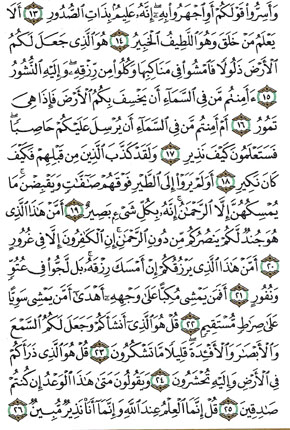 وَأَسِرُّوا۟ قَوْلَكُمْ أَوِ ٱجْهَرُوا۟ بِهِۦٓ ۖ إِنَّهُۥ عَلِيمٌۢ بِذَاتِ ٱلصُّدُورِ ١٣ أَلَا
يَعْلَمُ مَنْ خَلَقَ وَهُوَ ٱللَّطِيفُ ٱلْخَبِيرُ ١٤ هُوَ ٱلَّذِى جَعَلَ لَكُمُ
ٱلْأَرْضَ ذَلُولًا فَٱمْشُوا۟ فِى مَنَاكِبِهَا وَكُلُوا۟ مِن رِّزْقِهِۦ ۖ وَإِلَيْهِ ٱلنُّشُورُ
١٥ ءَأَمِنتُم مَّن فِى ٱلسَّمَآءِ أَن يَخْسِفَ بِكُمُ ٱلْأَرْضَ فَإِذَا هِىَ
تَمُورُ ١٦ أَمْ أَمِنتُم مَّن فِى ٱلسَّمَآءِ أَن يُرْسِلَ عَلَيْكُمْ حَاصِبًا ۖ
فَسَتَعْلَمُونَ كَيْفَ نَذِيرِ ١٧ وَلَقَدْ كَذَّبَ ٱلَّذِينَ مِن قَبْلِهِمْ فَكَيْفَ
كَانَ نَكِيرِ ١٨ أَوَلَمْ يَرَوْا۟ إِلَى ٱلطَّيْرِ فَوْقَهُمْ صَٰٓفَّٰتٍ وَيَقْبِضْنَ ۚ مَا
يُمْسِكُهُنَّ إِلَّا ٱلرَّحْمَٰنُ ۚ إِنَّهُۥ بِكُلِّ شَىْءٍۭ بَصِيرٌ ١٩ أَمَّنْ هَٰذَا ٱلَّذِى
هُوَ جُندٌ لَّكُمْ يَنصُرُكُم مِّن دُونِ ٱلرَّحْمَٰنِ ۚ إِنِ ٱلْكَٰفِرُونَ إِلَّا فِى غُرُورٍ
٢٠ أَمَّنْ هَٰذَا ٱلَّذِى يَرْزُقُكُمْ إِنْ أَمْسَكَ رِزْقَهُۥ ۚ بَل لَّجُّوا۟ فِى عُتُوٍّ
وَنُفُورٍ ٢١ أَفَمَن يَمْشِى مُكِبًّا عَلَىٰ وَجْهِهِۦٓ أَهْدَىٰٓ أَمَّن يَمْشِى سَوِيًّا
عَلَىٰ صِرَٰطٍ مُّسْتَقِيمٍ ٢٢ قُلْ هُوَ ٱلَّذِىٓ أَنشَأَكُمْ وَجَعَلَ لَكُمُ ٱلسَّمْعَ
وَٱلْأَبْصَٰرَ وَٱلْأَفْـِٔدَةَ ۖ قَلِيلًا مَّا تَشْكُرُونَ ٢٣ قُلْ هُوَ ٱلَّذِى ذَرَأَكُمْ
فِى ٱلْأَرْضِ وَإِلَيْهِ تُحْشَرُونَ ٢٤ وَيَقُولُونَ مَتَىٰ هَٰذَا ٱلْوَعْدُ إِن كُنتُمْ
صَٰدِقِينَ ٢٥ قُلْ إِنَّمَا ٱلْعِلْمُ عِندَ ٱللَّهِ وَإِنَّمَآ أَنَا۠ نَذِيرٌ مُّبِينٌ ٢٦